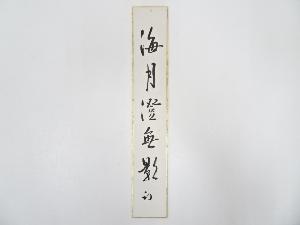 海月澄無影